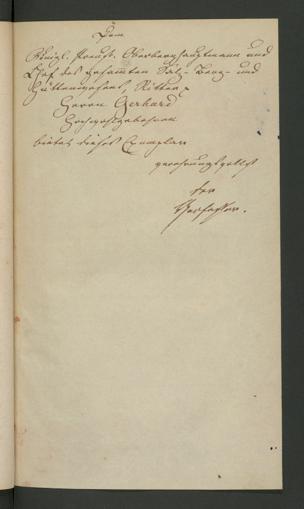 Dem
Königl. Preuß. Oberberghauptmann und
Chef des gesamten Salz- Berg- und
Hüttenwesens, Ritter p
Herrn Gerhard
Hochwohlgebohren
bietet dieses Exemplar
verehrungsvollst
der
Verfasser.